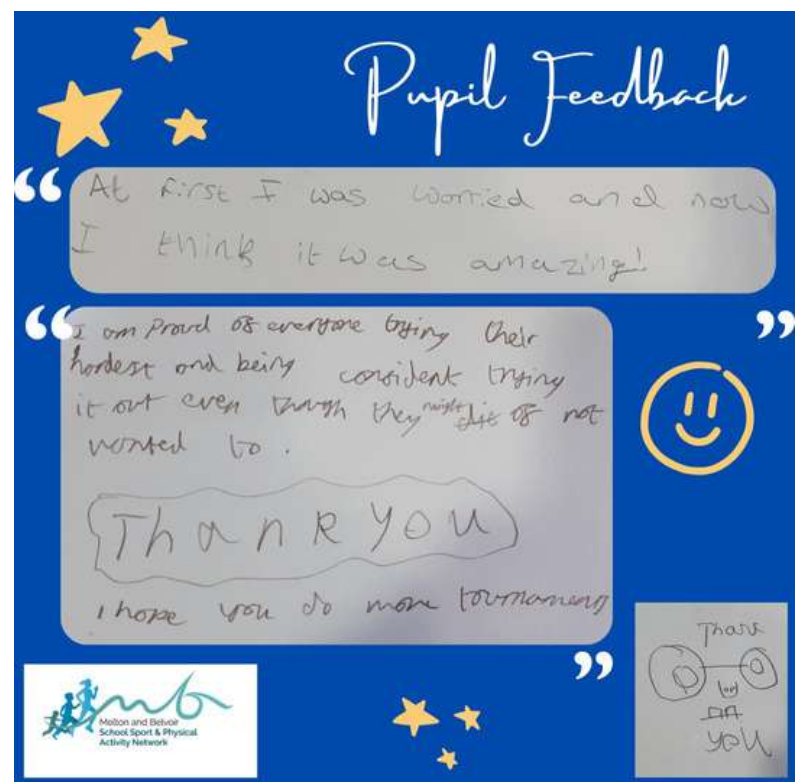 Pupil Feedback
At first I was worried and now
I think it was amazing!
I am Proud of everyone trying their
hardest and being confident trying
it out even though they might of not
wanted to.
Thank you
I hope you do more tournaments
Melton and Belvoir
School Sport & Physical
Activity Network
Thank
you